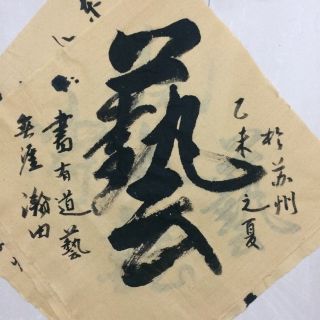 藝
書有道藝
無涯 瀚田
乙未之夏
於苏州